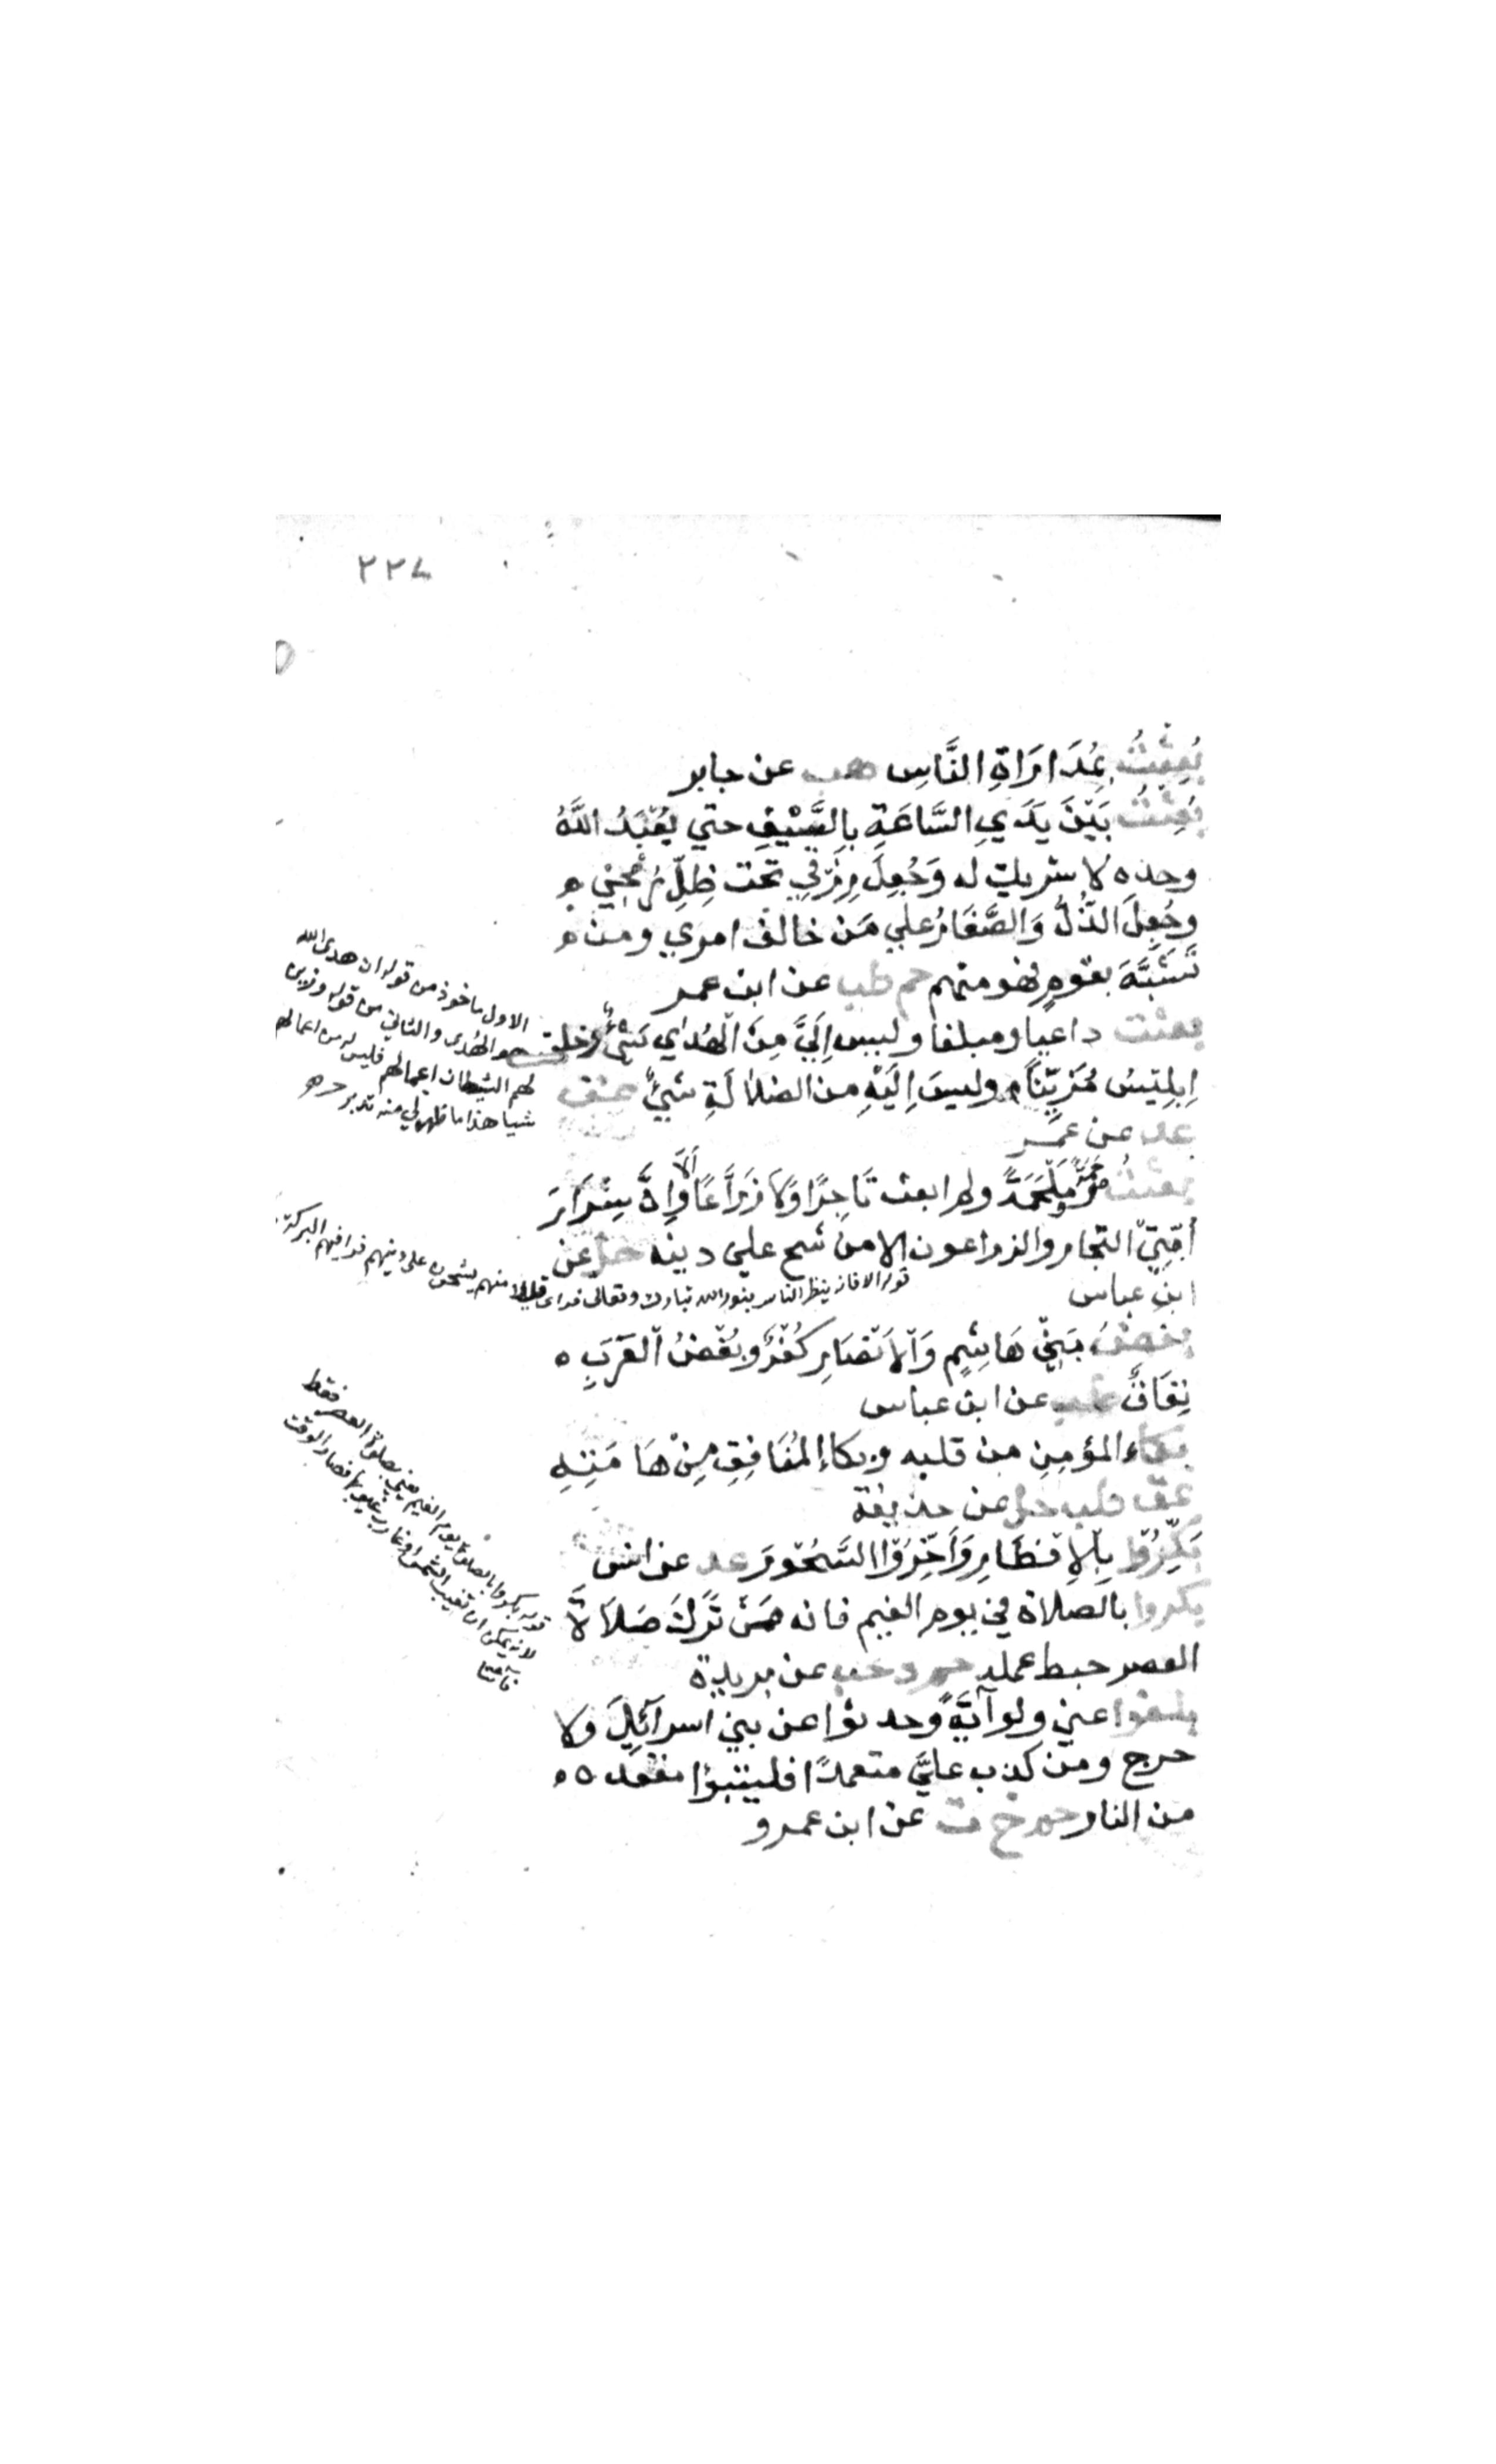 ٢٢٧
بُعِثْتُ بِمُدَارَاةِ النَّاسِ هب عن جابر
بُعِثْتُ بَيْنَ يَدَيِ السَّاعَةِ بِالسَّيْفِ حتي يُعْبَدُ اللَّهُ
وحده لا شريك له وَجُعِلَ رِزْقِي تحت ظِلِّ رُمْحِي
وجُعِلَ الذُّلُّ وَالصَّغَارُ علي مَن خالف امري ومن
تَشَبَّهَ بقومٍ فهو منهم حم طب عن ابن عمر
بعثت داعيا ومبلغا وليس اِلَيَّ مِنَ الْهُدَاي شَيْءٌ وخلق
اِبْلِيسُ مُزَيِّنًا وليسَ اِلَيْهِ من الضلالَةِ شَيْءٌ عق
عد عن عمر
بعثت مَرْحَمَةً وَمَلْحَمَةً ولم ابعث تَاجِرًا وَلَا زَرَّاعًا اَلَا وَاِنَّ شِرَارَ
اُمَّتِي التجار والزراعون الا من شح علي دينه حل عن
ابن عباس
بغض بَنِي هَاشِمٍ وَالْاَنْصَارِ كُفْرٌ وبُغْضُ الْعَرَبِ
نِفَاقٌ طب عن ابن عباس
بكاء المؤمِنِ من قلبه وبكاء المُنَافِقِ مِنْ هَامَتِهِ
عق طب حل عن حذيفة
بَكِّرُوْا بِالْاِفْطَارِ وَاَخِّرُوْا السَّحُوْرَ عد عن انس
بكروا بالصلاة في يوم الغيم فانه مَنْ تَرَكَ صَلَاةَ
العصر حبط عمله حم ه حب عن بريدة
بلغوا عني ولو آيَةً وحدثوا عن بني اسرآئِلَ ولا
حرج ومن كذب عليَّ متعمدًا فليتبوا مقعده
من النار حم خ ت عن ابن عمرو
الاول ماخوذ من قوله ان هدى الله
هو الهدى والثاني من قوله وزين
لهم الشيطان اعمالهم فليس له من اعمالهم
شيا هذا ما ظهر لي منه تدبر
قوله الا فانه ينظر الناس بنور الله تبارك وتعالى منهم يشحون على دينهم البركة
قوله بكروا بالصلوة يوم الغيم يعني بصلوة العصر فقط
لانه يمكن ان تغيب الشمس فصار الوقت